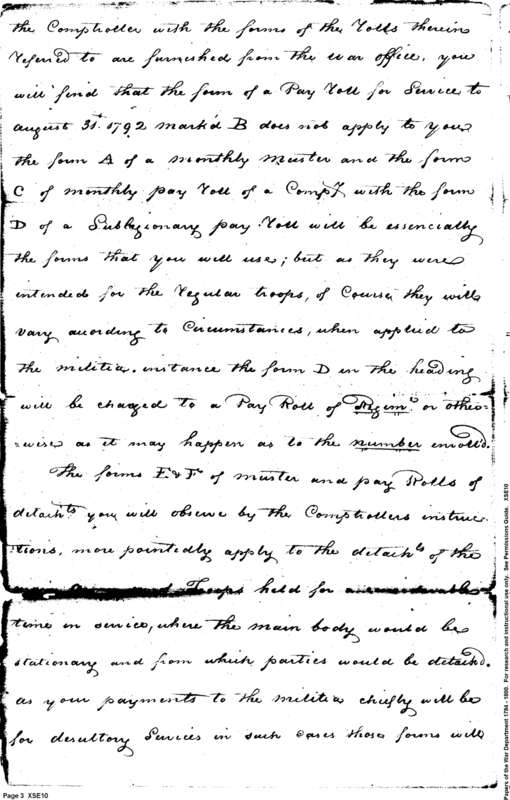 the Comptroller with the forms of the Rolls therein
referred to are furnished from the war office, you
will find that the form of a Pay Roll for Service to
august 31st. 1792 mark'd B does not apply to you
the form A of a monthly muster and the form
C of monthly pay Roll of a Compy with the form
D of a Sublegionary pay Roll will be essencially
the forms that you will use; but as they were
intended for the regular troops, of Course they will
vary according to Circumstances, when applied to
the militia. instance the form D in the heading
will be changed to a Pay Roll of Regimt. or other=
=wise as it may happen as to the number enroll'd.
The forms E & F of muster and pay Rolls of
detachts you will observe by the Comptrollers instruc-
tions, more pointedly apply to the detachts of the
Troops held for
time in service, where the main body would be
stationary and from which parties would be detach'd.
as your payments to the militia chiefly will be
for desultory Services in such cases those forms will
Page 3 XSE10
Papers of the War Department 1784 - 1800. For research and instructional use only. See Permissions Guide. XSE10